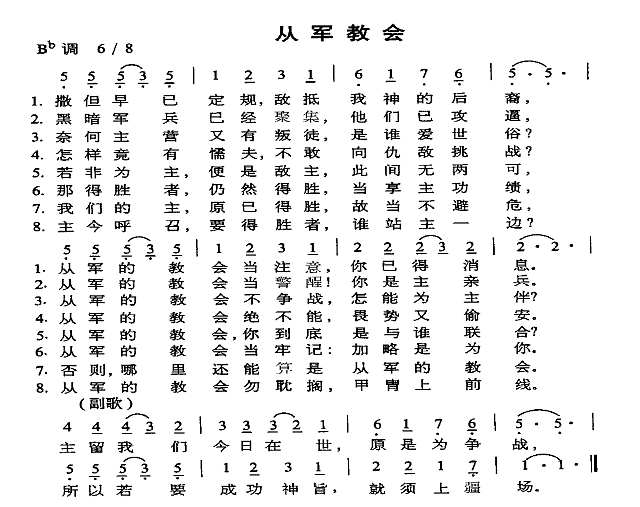 从军教会
B♭ 调 6 / 8
5 5 5 3 5 | 1 2 3 1 | 6 1 7 6 | 5 · 5 · |
1. 撒但早已定规，敌抵我神的后裔，
2. 黑暗军兵已经聚集，他们已攻逼，
3. 奈何主营又有叛徒，是谁爱世俗？
4. 怎样竟有懦夫，不敢向仇敌挑战？
5. 若非为主，便是敌主，此间无两可，
6. 那得胜者，仍然得胜，当享主功绩，
7. 我们的主，原已得胜，故当不避危，
8. 主今呼召，要得胜者，谁站主一边？
5 5 5 3 5 | 1 2 3 1 | 2 2 2 3 2 | 2 · 2 ·
1. 从军的教会当注意，你已得消息。
2. 从军的教会当警醒！你是主亲兵。
3. 从军的教会不争战，怎能为主伴？
4. 从军的教会绝不能，畏势又偷安。
5. 从军的教会，你到底是与谁联合？
6. 从军的教会当牢记：加略是为你。
7. 否则，哪里还能算是从军的教会。
8. 从军的教会勿耽搁，甲胄上前线。
(副歌)
4 4 4 3 2 | 1 2 3 1 · | 6 1 7 6 | 5 · 5 · |
主留我们今日在世，原是为争战，
5 5 5 3 5 | 1 2 3 1 | 2 2 1 7 | 1 · 1 · ‖
所以若要成功神旨，就须上疆场。